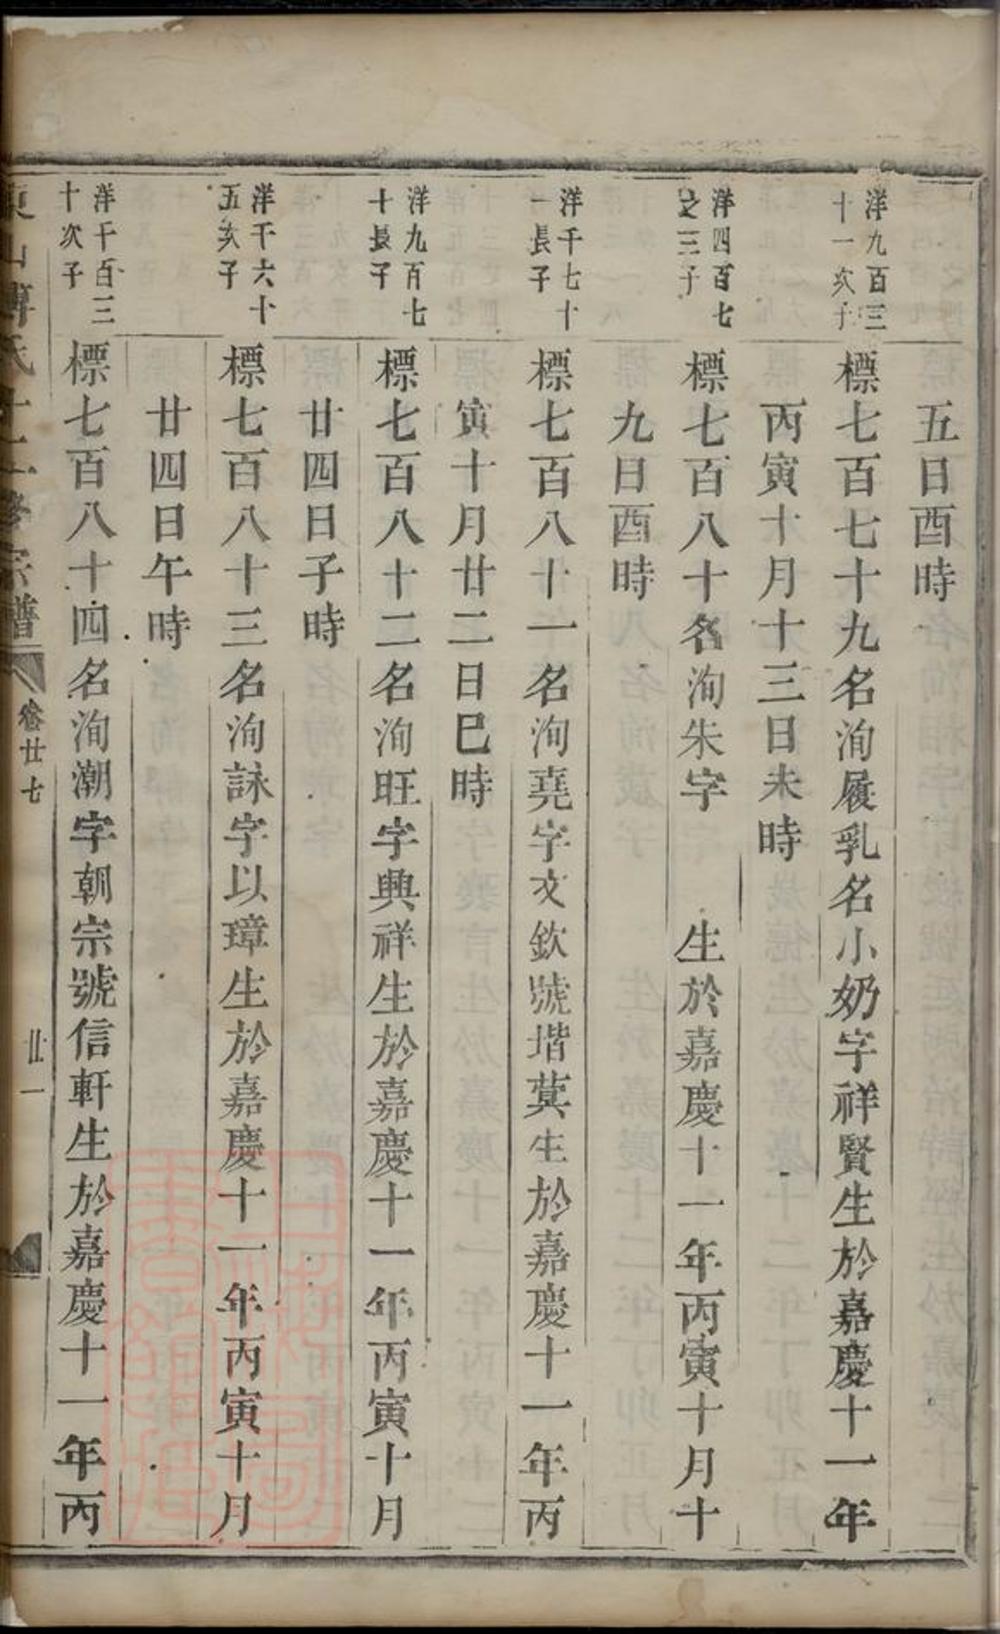 五日酉時
洋九百三
十一次子
標七百七十九名洵履乳名小奶字祥賢生於嘉慶十一年
丙寅十月十三日未時
洋四百七
之三子
標七百八十名洵朱字　生於嘉慶十一年丙寅十月十
九日酉時
洋千七十
一長子
標七百八十一名洵堯字文欽號堦蓂生於嘉慶十一年丙
寅十月廿二日巳時
洋九百七
十長子
標七百八十二名洵旺字興祥生於嘉慶十一年丙寅十月
廿四日子時
洋千六十
五次子
標七百八十三名洵詠字以璋生於嘉慶十一年丙寅十月
廿四日午時
洋千百三
十次子
標七百八十四名洵潮字朝宗號信軒生於嘉慶十一年丙
東山傅氏十二修宗譜
卷廿七
廿一